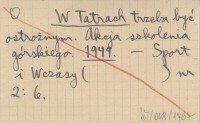 W Tatrach trzeba być
ostrożnym. Akcja szkolenia
górskiego. 1949. — Sport
i Wczasy ( ) nr
2: 6.